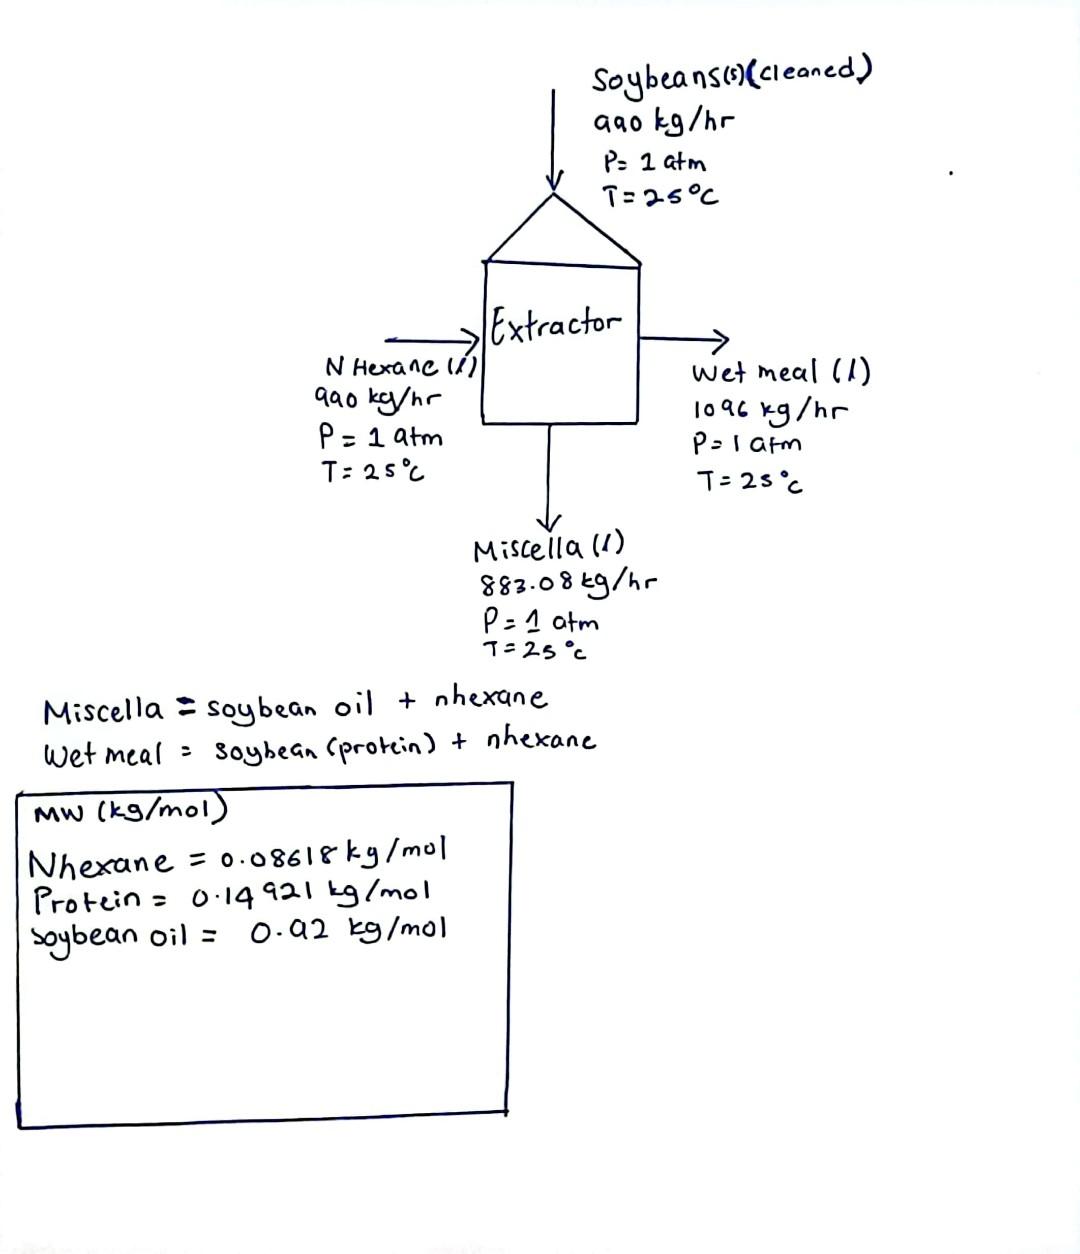 Soybeans(s)(cleaned)
990 kg/hr
P= 1 atm
T=25°C
Extractor
N Hexane (l)
990 kg/hr
P = 1 atm
T= 25°C
Wet meal (l)
1096 kg/hr
P= 1 atm
T= 25°C
Miscella (l)
883.08 kg/hr
P= 1 atm
T= 25°C
Miscella = soybean oil + nhexane
Wet meal = soybean (protein) + nhexane
MW (kg/mol)
Nhexane = 0.08618 kg/mol
Protein = 0.14921 kg/mol
soybean oil = 0.92 kg/mol